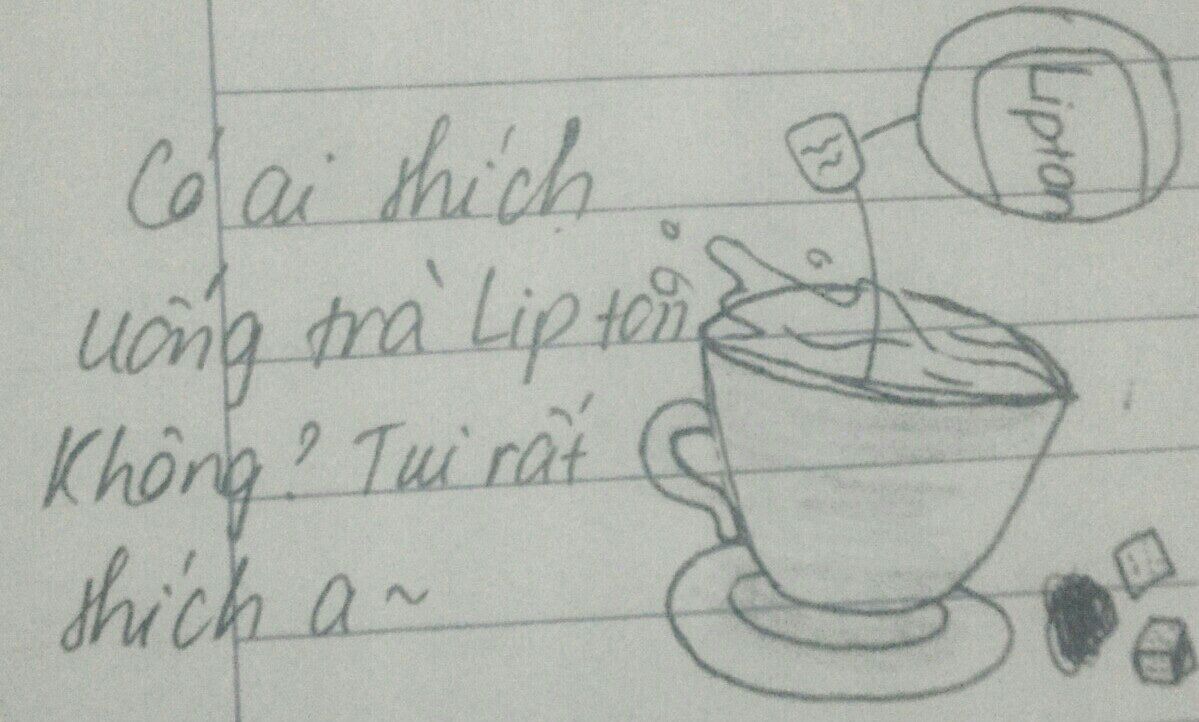 Có ai thích
uống trà Lip tôn
Không? Tui rất
thích a~
Lipton